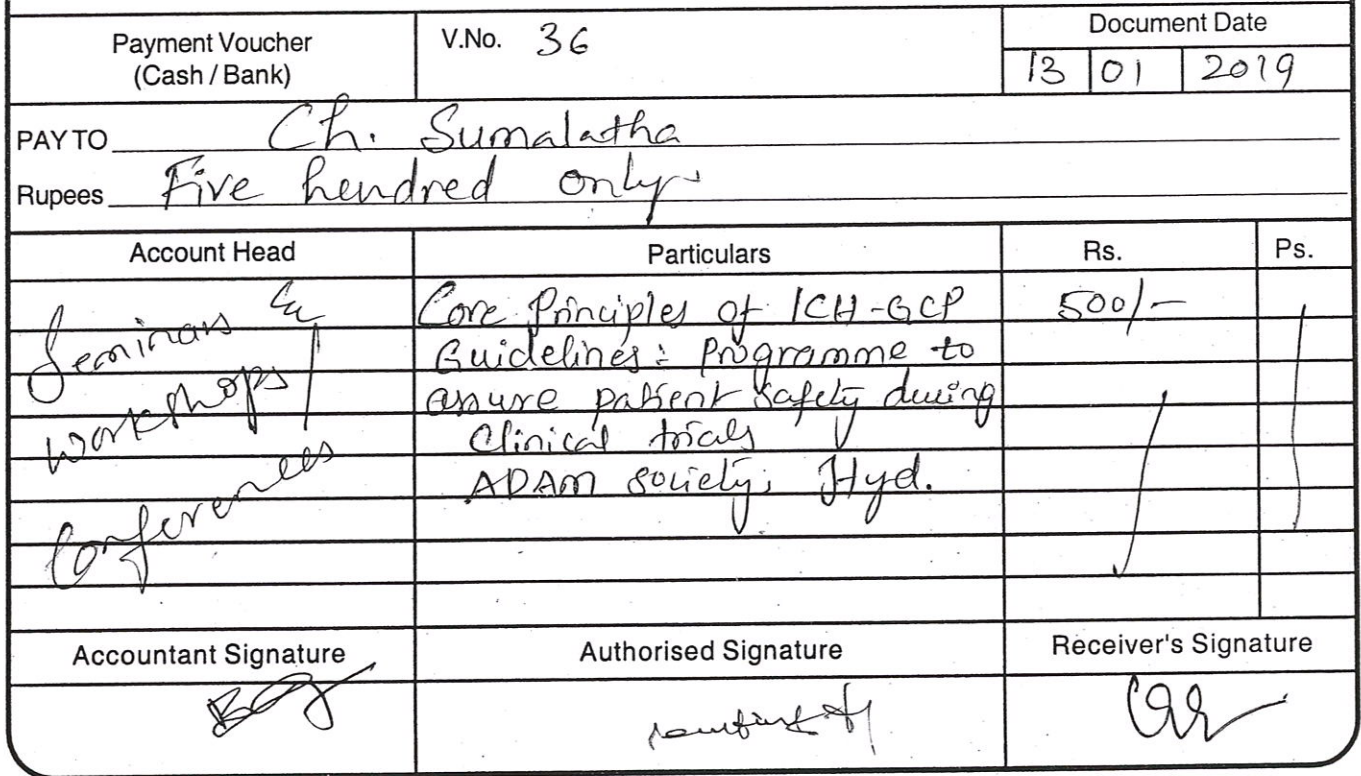 Payment Voucher
(Cash / Bank)
V.No. 36
Document Date
13 01 2019
PAY TO Ch. Sumalatha
Rupees Five hendred only
Account Head
Particulars
Rs.
Ps.
Seminars
workshops
Conferences
Core Principles of ICH-GCP
Guidelines: Programme to
assure patient safety during
Clinical trials
ADAM society, Hyd.
500/-
Accountant Signature
Authorised Signature
Receiver's Signature